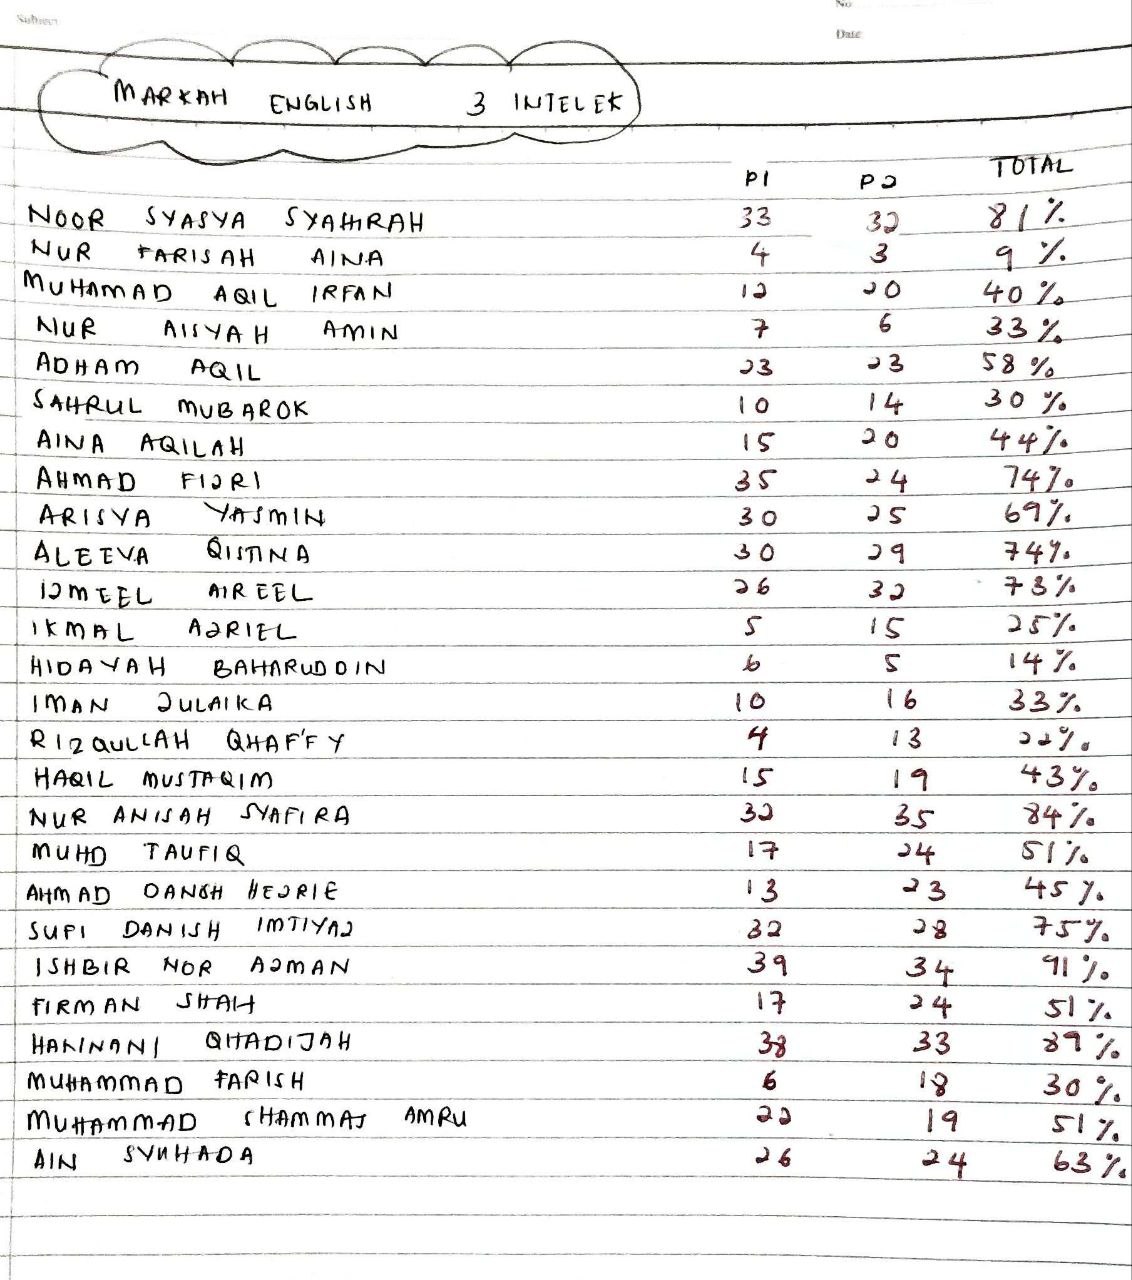 Subject
No
Date
MARKAH ENGLISH 3 INTELEK
P1 P2 TOTAL
NOOR SYASYA SYAHIRAH 33 32 81%
NUR FARISAH AINA 4 3 9%
MUHAMAD AQIL IRFAN 12 20 40%
NUR AISYAH AMIN 7 6 33%
ADHAM AQIL 23 23 58%
SAHRUL MUBAROK 10 14 30%
AINA AQILAH 15 20 44%
AHMAD FIZRI 35 24 74%
ARISYA YASMIN 30 25 69%
ALEEYA QISTINA 30 29 74%
IZMEEL AIREEL 26 32 73%
IKMAL AZRIEL 5 15 25%
HIDAYAH BAHARUDDIN 6 5 14%
IMAN ZULAIKA 10 16 33%
RIZQULLAH QHAF'FY 4 13 22%
HAQIL MUSTAQIM 15 19 43%
NUR ANISAH SYAFIRA 32 35 84%
MUHD TAUFIQ 17 24 51%
AHMAD DANISH HEZRIE 13 23 45%
SUFI DANISH IMTIYAZ 32 28 75%
ISHBIR NOR AZMAN 39 34 91%
FIRMAN SHAH 17 24 51%
HANINANI QHADIJAH 38 33 89%
MUHAMMAD FARISH 6 18 30%
MUHAMMAD SHAMMAS AMRU 22 19 51%
AIN SYUHADA 26 24 63%